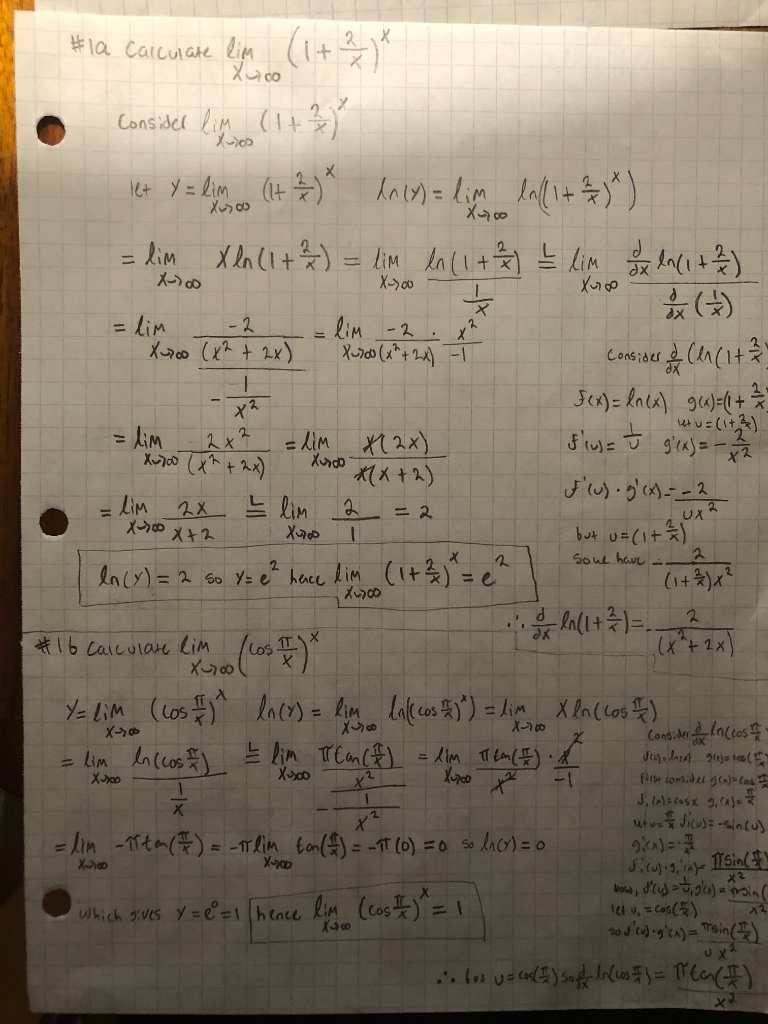 #1a Calculate lim x→∞ (1 + 2/x)^x
Consider lim x→∞ (1 + 2/x)^x
let Y = lim x→∞ (1 + 2/x)^x ln(Y) = lim x→∞ ln((1 + 2/x)^x)
= lim x→∞ x ln(1 + 2/x) = lim x→∞ ln(1 + 2/x) / (1/x) L= lim x→∞ d/dx ln(1 + 2/x) / d/dx (1/x)
= lim x→∞ (-2/(x² + 2x)) / (-1/x²) = lim x→∞ -2/(x² + 2x) · x²/-1
= lim x→∞ 2x²/(x² + 2x) = lim x→∞ x(2x)/x(x + 2)
= lim x→∞ 2x/(x + 2) L= lim x→∞ 2/1 = 2
ln(Y) = 2 so Y = e² hence lim x→∞ (1 + 2/x)^x = e²
Consider d/dx (ln(1 + 2/x
f(x) = ln(x) g(x) = (1 + 2/x
let u = (1 + 2/x)
f'(u) = 1/u g'(x) = -2/x²
f'(u) · g'(x) = -2/ux²
but u = (1 + 2/x)
so we have -2/((1 + 2/x)x²)
∴ d/dx ln(1 + 2/x) = -2/(x² + 2x)
#1b Calculate lim x→∞ (cos π/x)^x
Y = lim x→∞ (cos π/x)^x ln(Y) = lim x→∞ ln((cos π/x)^x) = lim x→∞ x ln(cos π/x)
= lim x→∞ ln(cos π/x) / (1/x) L= lim x→∞ (π tan(π/x)/x²) / (-1/x²) = lim x→∞ π tan(π/x)/x² · x²/-1
= lim x→∞ -π tan(π/x) = -π lim x→∞ tan(π/x) = -π(0) = 0 so ln(Y) = 0
which gives Y = e⁰ = 1 hence lim x→∞ (cos π/x)^x = 1
Consider d/dx ln(cos π/x
f(x) = ln(x) g(x) = cos(π/x
first consider g(x) = cos π/x
f₁(x) = cos x g₁(x) = π/x
let u = π/x f₁'(u) = -sin(u)
g₁'(x) = -π/x²
f₁'(u) · g₁'(x) = π sin(π/x)/x²
now, f'(u) = 1/u, g'(x) = π sin(/x²
let u = cos(π/x)
so f'(u) · g'(x) = π sin(π/x)/ux²
∴ u = cos(π/x) so d/dx ln(cos π/x) = π tan(π/x)/x²